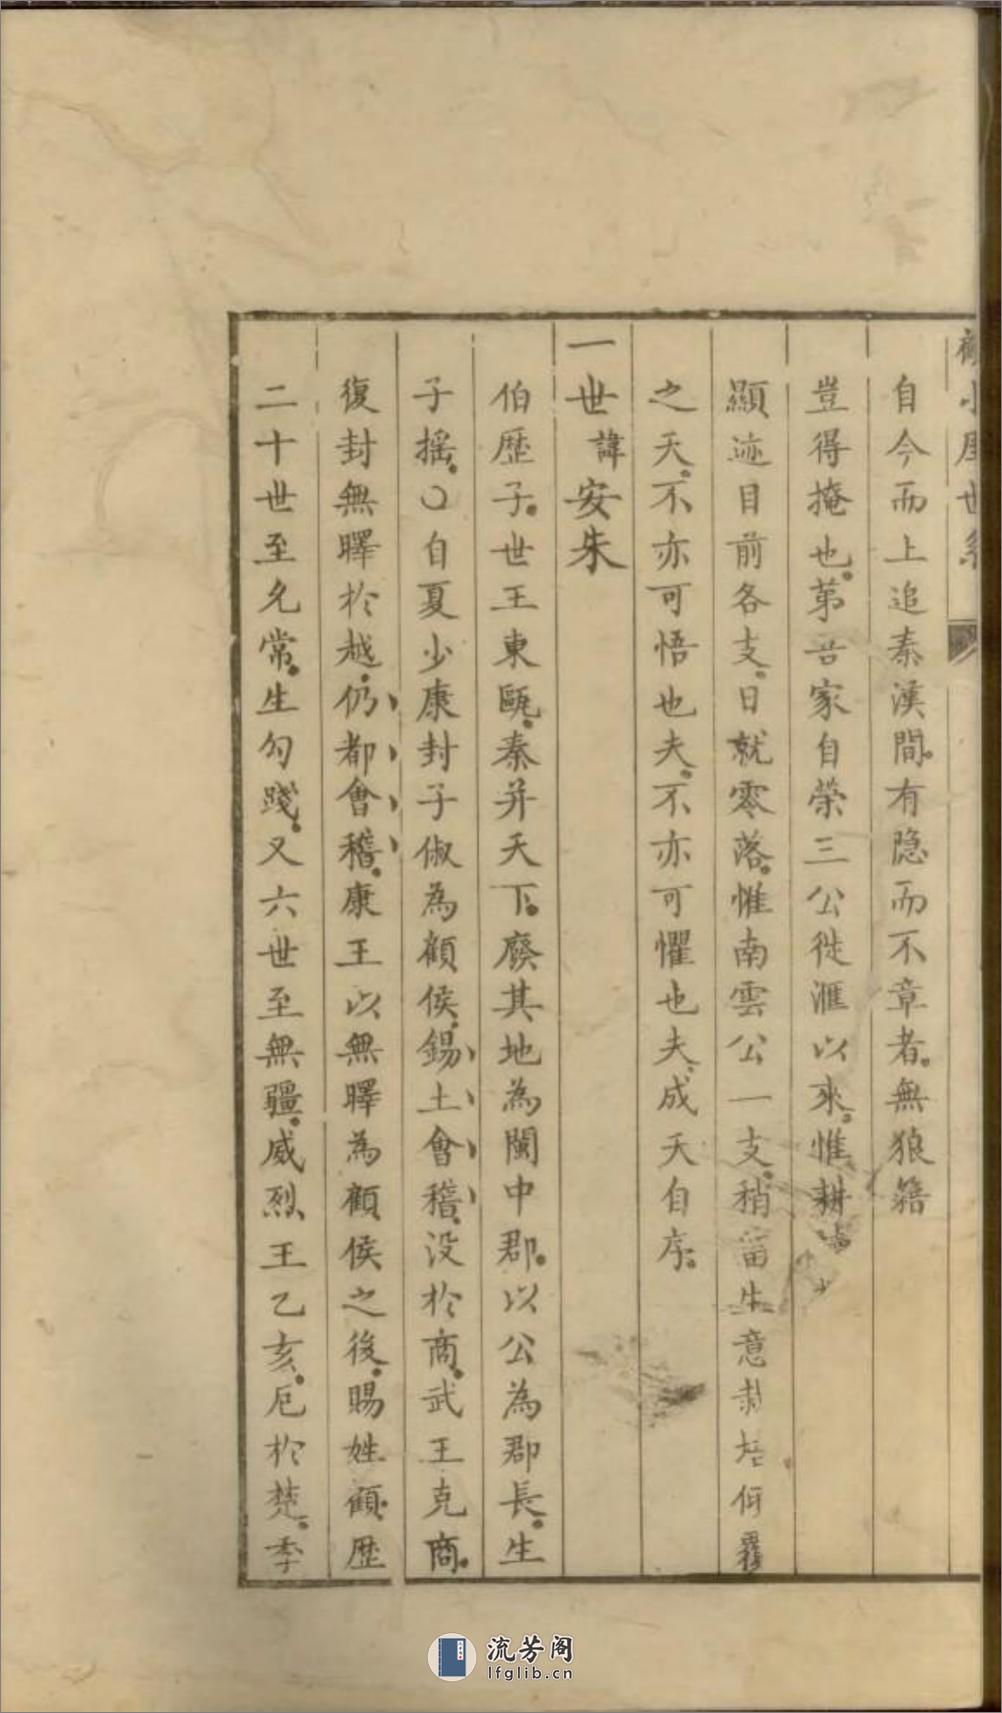 小厓世系
自今而上追秦漢間有隐而不章者無狼籍
豈得掩也第吾家自榮三公徙滙以來惟耕
顯迹目前各支日就零落惟南雲公一支稍留生意栽培何
之天不亦可悟也夫不亦可懼也夫成天自序
一世諱安朱
伯歷子世王東甌秦并天下廢其地為閩中郡以公為郡長生
子摇〇自夏少康封子俶為顧侯錫土會稽没於商武王克商
復封無曎於越仍都會稽康王以無曎為顧侯之後賜姓顧歷
二十世至允常生勾踐又六世至無疆威烈王乙亥厄於楚季
流芳阁
lfglib.cn